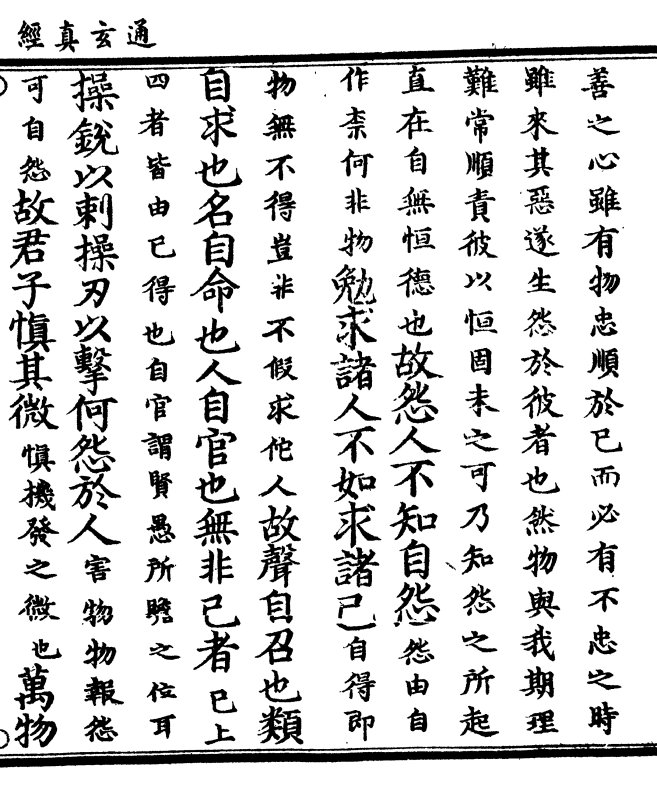 通玄真經
善之心雖有物忠順於已而必有不忠之時
雖來其惡遂生怨於彼者也然物與我期理
難常順責彼以恒固未之可乃知怨之所起
直在自無恒德也故怨人不知自怨怨由自
作柰何非物勉求諸人不如求諸已自得即
物無不得豈非不假求佗人故聲自召也類
自求也名自命也人自官也無非已者已上
四者皆由已得也自官謂賢愚所瞻之位耳
操銳以刺操刃以擊何怨於人害物物報怨
可自怨故君子慎其微慎機發之微也萬物